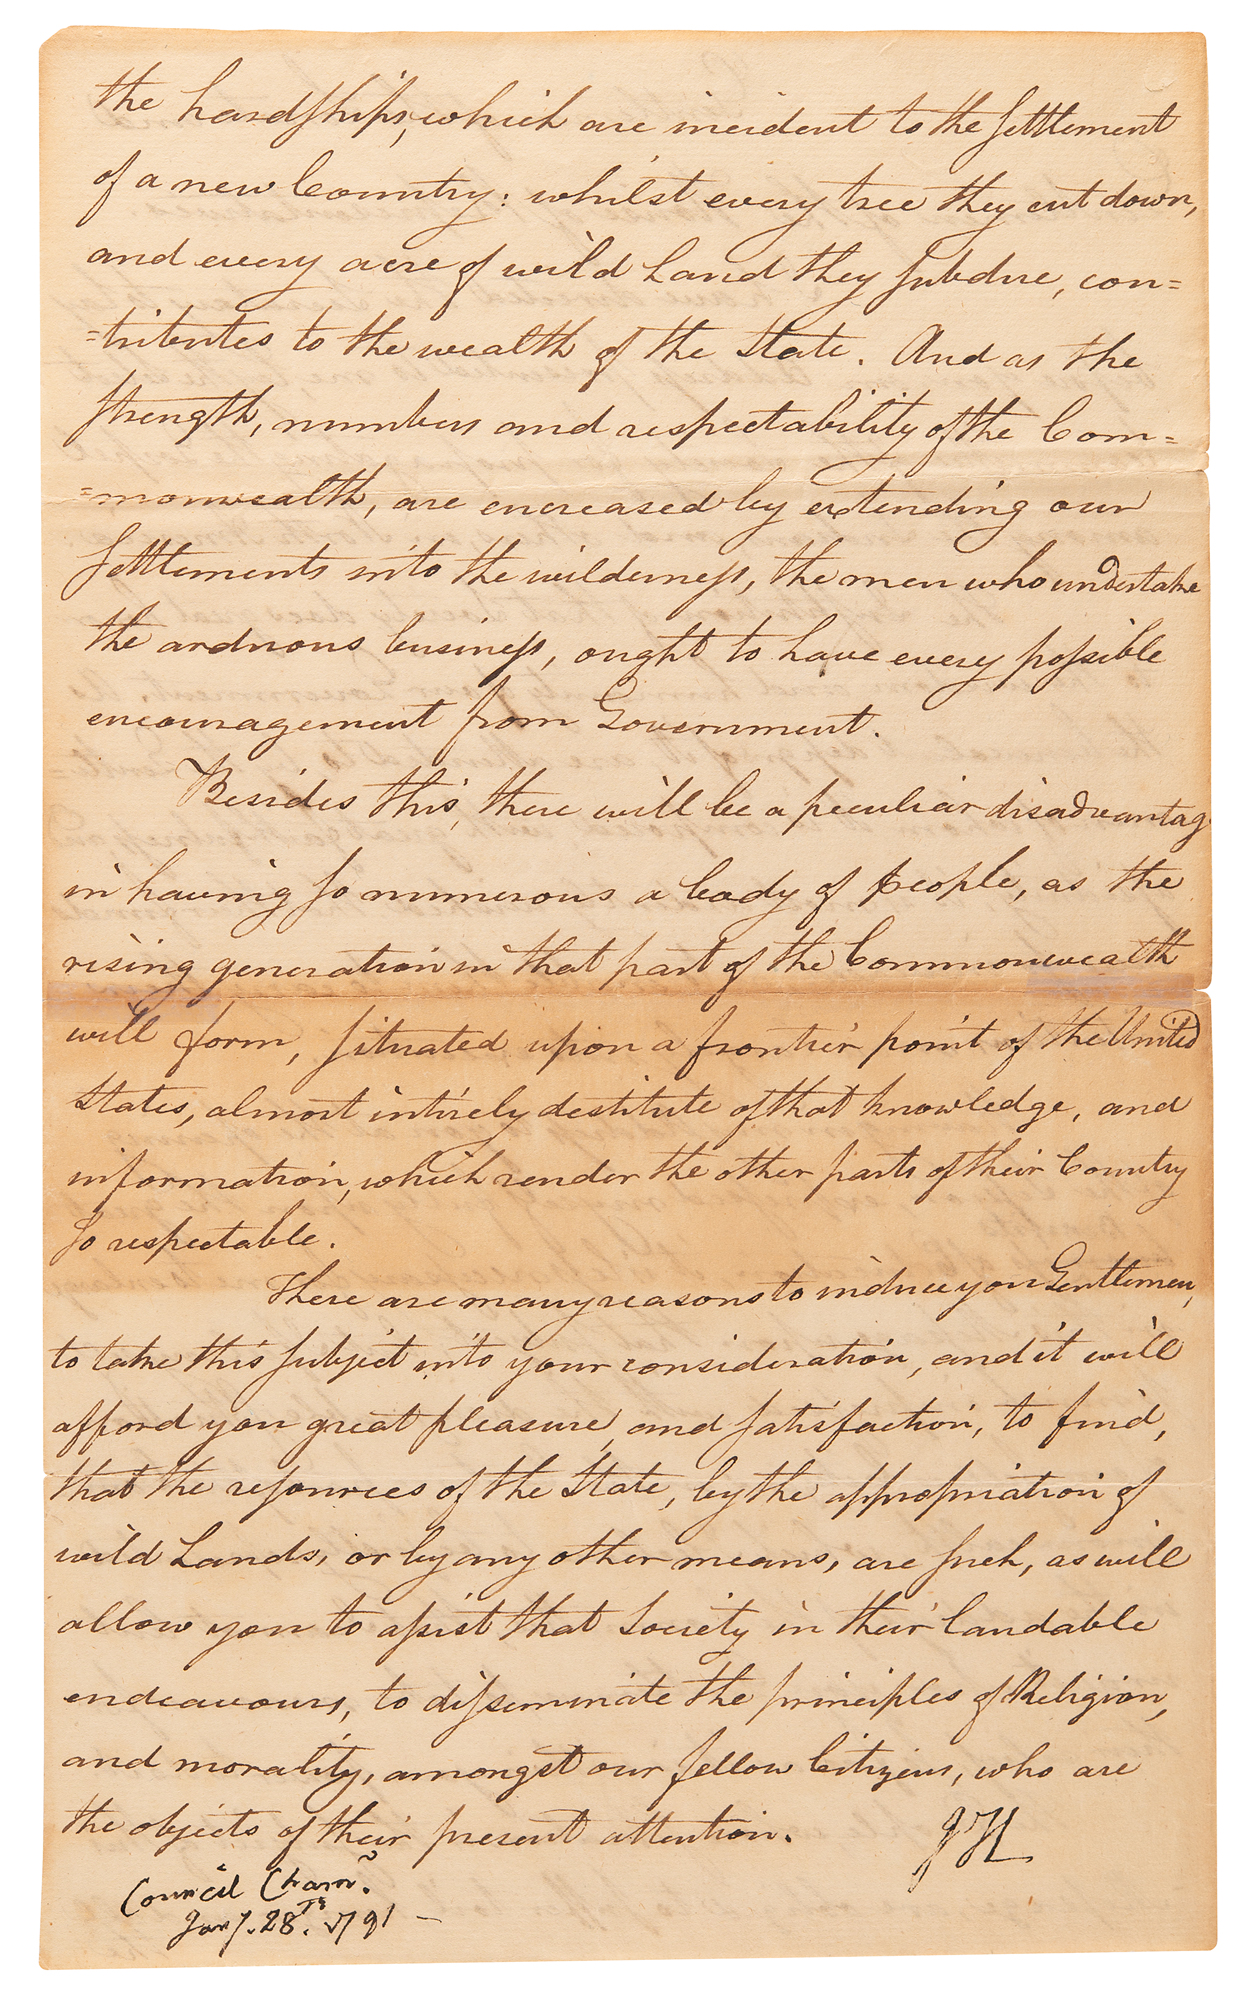 the hardships, which are incident to the settlement
of a new Country: whilst every tree they cut down,
and every acre of wild Land they subdue, con=
=tributes to the wealth of the State. And as the
strength, numbers and respectability of the Com=
=monwealth, are encreased by extending our
settlements into the wilderness, the men who undertake
the arduous business, ought to have every possible
encouragement from Government.
Besides this, there will be a peculiar disadvantag
in having so numerous a body of people, as the
rising generation in that part of the Commonwealth
will form, situated upon a frontier point of the United
States, almost intirely destitute of that knowledge, and
information, which render the other parts of their Country
so respectable.
There are many reasons to induce you Gentlemen,
to take this subject into your consideration, and it will
afford you great pleasure, and satisfaction, to find,
that the resources of the State, by the appropriation of
wild Lands, or by any other means, are such, as will
allow you to assist that Society in their laudable
endeavours, to disseminate the principles of Religion,
and morality, amongst our fellow Citizens, who are
the objects of their present attention.
JH
Council Cham.
Jany. 28th. 1791 —